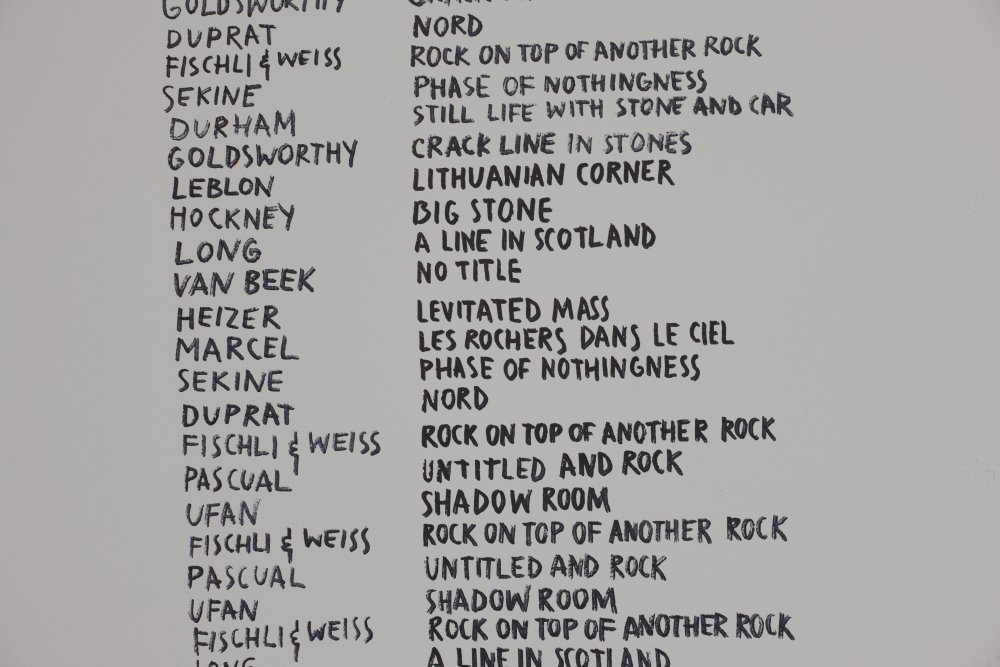 GOLDSWORTHY CRACK
DUPRAT NORD
FISCHLI & WEISS ROCK ON TOP OF ANOTHER ROCK
SEKINE PHASE OF NOTHINGNESS
DURHAM STILL LIFE WITH STONE AND CAR
GOLDSWORTHY CRACK LINE IN STONES
LEBLON LITHUANIAN CORNER
HOCKNEY BIG STONE
LONG A LINE IN SCOTLAND
VAN BEEK NO TITLE
HEIZER LEVITATED MASS
MARCEL LES ROCHERS DANS LE CIEL
SEKINE PHASE OF NOTHINGNESS
DUPRAT NORD
FISCHLI & WEISS ROCK ON TOP OF ANOTHER ROCK
PASCUAL UNTITLED AND ROCK
UFAN SHADOW ROOM
FISCHLI & WEISS ROCK ON TOP OF ANOTHER ROCK
PASCUAL UNTITLED AND ROCK
UFAN SHADOW ROOM
FISCHLI & WEISS ROCK ON TOP OF ANOTHER ROCK
LONG A LINE IN SCOTLAND